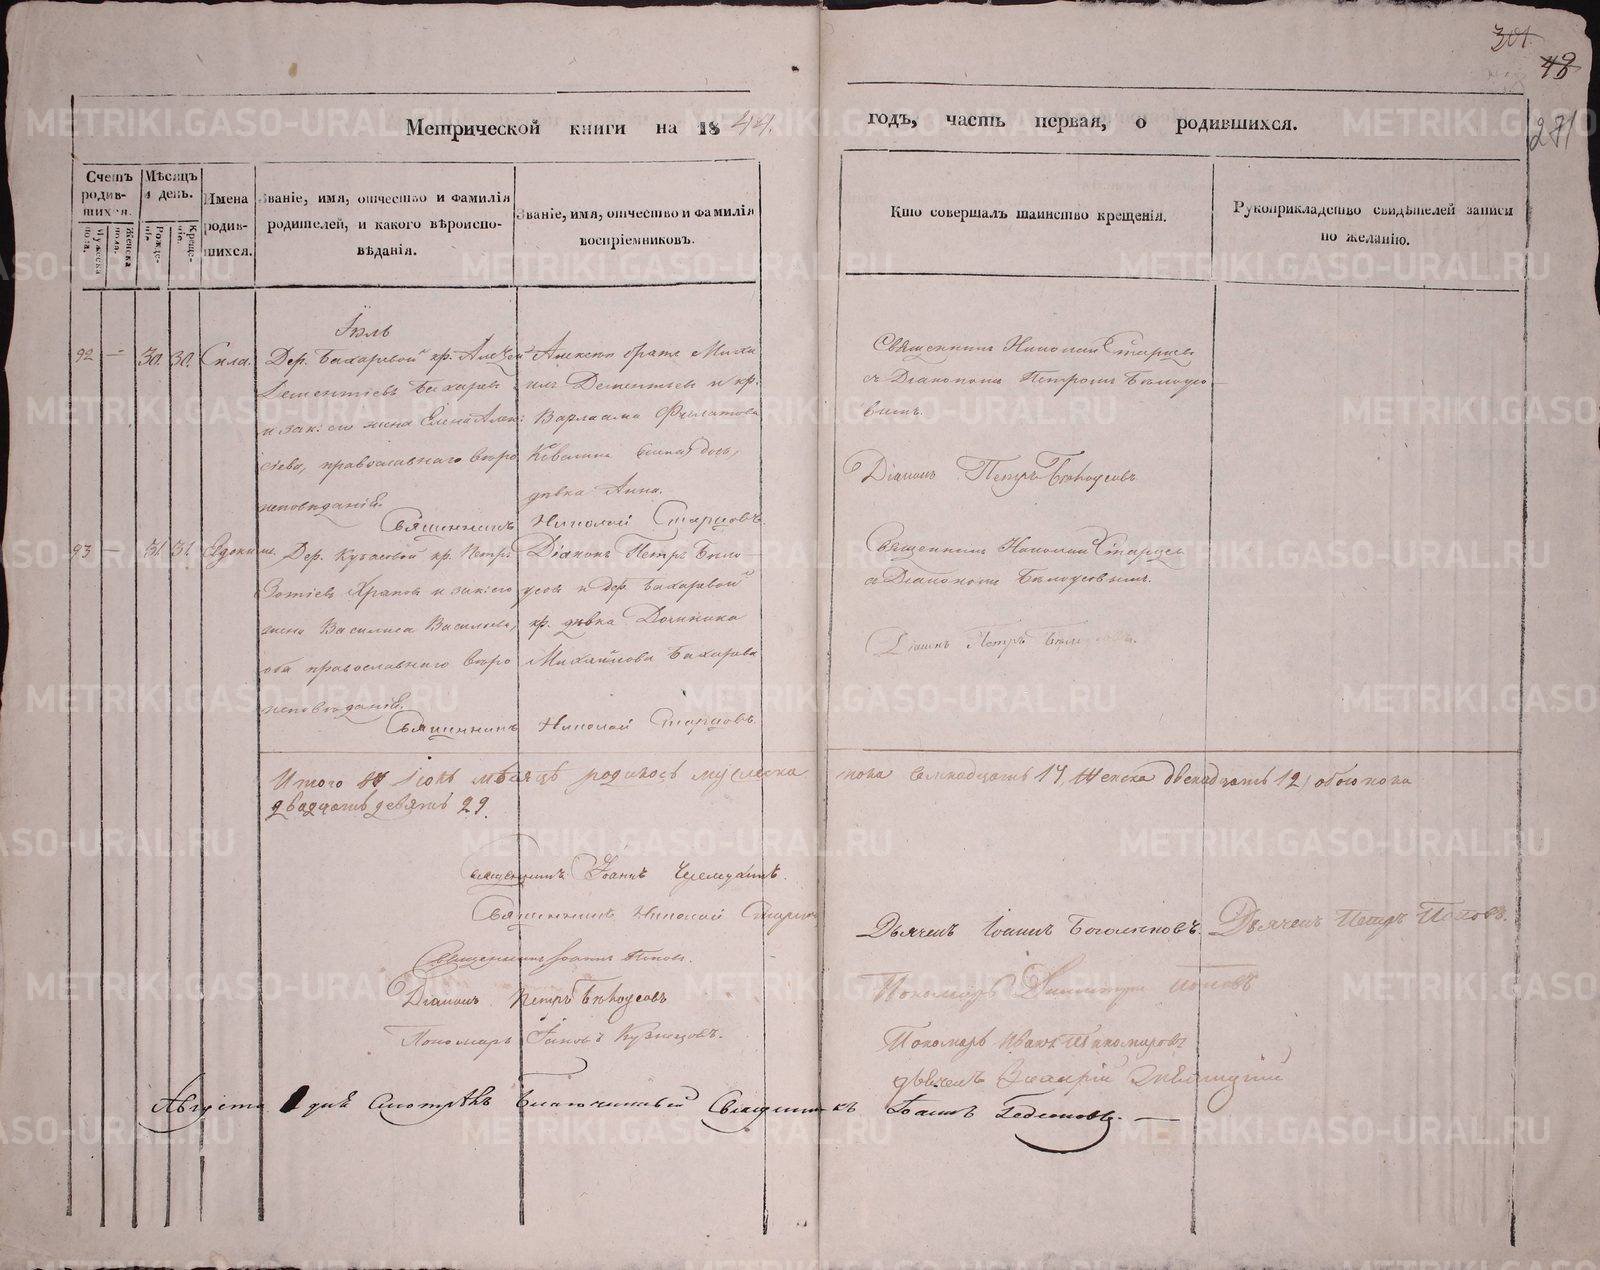 301.
48
271
Метрической книги на 1844. годъ, часть первая, о родившихся.
Счетъ родившихся.
Мужеска пола.
Женска пола.
Мѣсяцъ и день.
Рожденіе.
Крещеніе.
Имена родившихся.
Званіе, имя, отчество и фамилія родителей, и какого вѣроисповѣданія.
Званіе, имя, отчество и фамилія воспріемниковъ.
Кто совершалъ таинство крещенія.
Рукоприкладство свидѣтелей записи по желанію.
Іюль
92 — 30. 30. Сила.
Дер. Бахаревой кр. Алексѣй
Дементіевъ Бахаревъ
и зак: его жена Елена Алек:
сіева, православнаго вѣро
исповѣданія.
Алексѣя братъ Миха
илъ Дементьевъ и кр.
Варлаама Филатова
дочь,
дѣвка Анна.
Священникъ Николай Старцевъ
съ Діакономъ Петромъ Бѣлоусо
вымъ.
Діаконъ Петръ Бѣлоусовъ
Священникъ Николай Старцовъ.
93 — 31 31. Евдокимъ.
Дер. кр. Петръ
Зотіевъ Храповъ и зак: его
жена Василиса Васильева,
оба православнаго вѣро
исповѣданія.
Діаконъ Петръ Бѣло
усовъ и дер. Бахаревой
кр. дѣвка Домника
Михайлова Бахарева
Священникъ Николай Старцевъ
съ Діакономъ Бѣлоусовымъ.
Діаконъ Петръ Бѣлоусовъ.
Священникъ Николай Старцовъ.
Итого въ Іюлѣ мѣсяцѣ родилось мужеска пола семнадцать 17, женска двенадцать 12, обоего пола
двадцать девять 29.
Священникъ Іоаннъ
Священникъ Николай Старцовъ
Священникъ Іоаннъ Поповъ.
Діаконъ Петръ Бѣлоусовъ
Пономарь Іаковъ Кузнецовъ.
Дьячекъ Іоаннъ Боголеповъ.
Дьячекъ Петръ Поповъ.
Пономарь Димитрій Поповъ
Пономарь Иванъ Пономаревъ
Дьячекъ
Августа 1 дня Смотрѣлъ Благочинный Священникъ Іоаннъ
METRIKI.GASO-URAL.RU